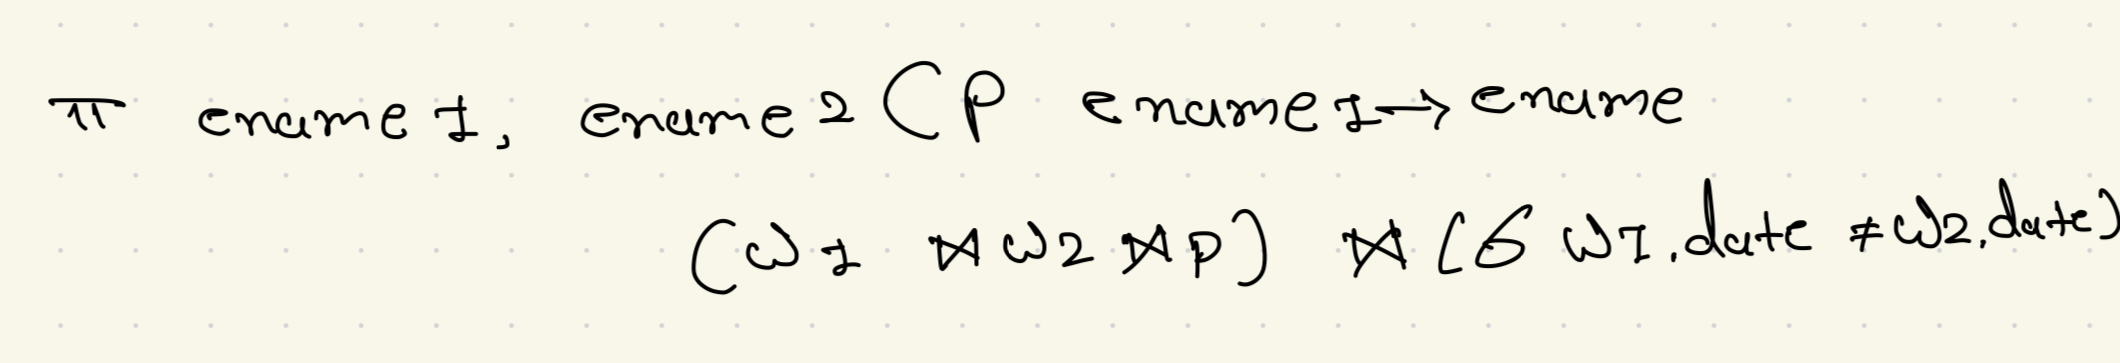 π ename 1, ename 2 (ρ ename 1→ ename
(W1 ⋈ W2 ⋈ P) ⋈ (σ W1.date ≠ W2.date)